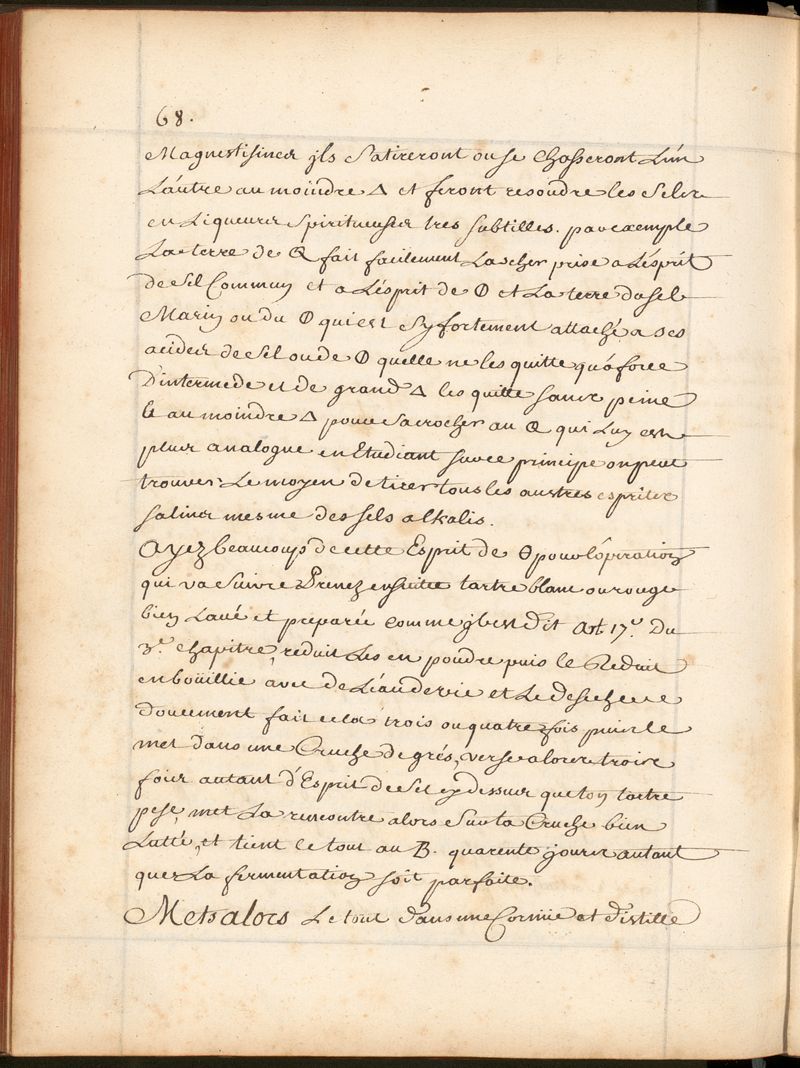 68.
Magnetisines jls satireront ou se chasseront L'un
L'autre au moindre △ et feront resoudre les Sels
en Liqueurs Spiritueuses tres subtilles. par exemple
La terre de fait facilement Lascher prise a L'esprit
de Sel Commun et a L'esprit de Ф et La terre du sel
Marin ou du Ф qui est sy fortement attaché a ses
acides de Sel ou de Ф quelle ne les quitte qu'a force
D'intermede et de grand △ les quitte sans peine
le au moindre △ pour Sacrocher au qui Luy est
plus analogue en Etudiant sur ce principe on peut
trouver Le moyen de tirer tous les austres esprites
salins mesme des sels alkalis.
Ayez beaucoup de cette Esprit de Θ pour l'opération
qui va Suivre Prenez ensuitte tartre blanc ou rouge
bien Laué et preparée comme jl est dit Art 17.e Du
3.e chapitre, reduit Les en poudre puis le Reduit
en boüillie avec de L'eau de vie et Le deseche
doucement fait cela trois ou quatre fois puis le
met dans une Cruche de grés, verse alors trois
fois autant d'Esprit de Sel par dessus que ton tartre
pese, met La rencontre alors Sur ta Cruche bien
Lutté, et tient le tout au B. quarente jours autant
que La fermentation soit parfaite.
Mets alors Le tout dans une Cornüe et distille